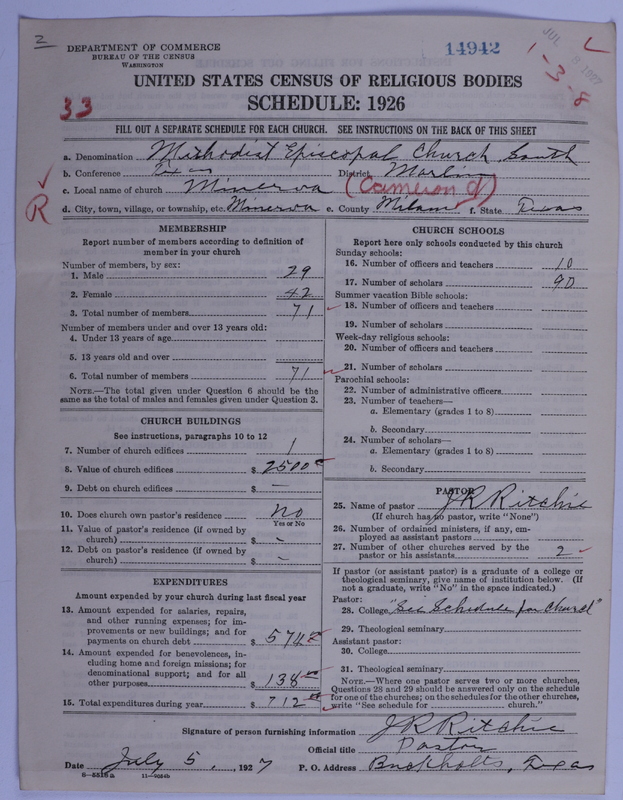 2
DEPARTMENT OF COMMERCE
BUREAU OF THE CENSUS
WASHINGTON
14942
JUL 8 1927
1-3-8
UNITED STATES CENSUS OF RELIGIOUS BODIES
33
SCHEDULE: 1926
FILL OUT A SEPARATE SCHEDULE FOR EACH CHURCH. SEE INSTRUCTIONS ON THE BACK OF THIS SHEET
a. Denomination Methodist Episcopal Church, South
b. Conference Texas District Marlin
c. Local name of church Minerva (Cameron D)
R
d. City, town, village, or township, etc. Minerva e. County Milam f. State Texas
MEMBERSHIP
Report number of members according to definition of member in your church
Number of members, by sex:
1. Male 29
2. Female 42
3. Total number of members 71
Number of members under and over 13 years old:
4. Under 13 years of age
5. 13 years old and over
6. Total number of members 71
NOTE.—The total given under Question 6 should be
same as the total of males and females given under Question 3.
CHURCH BUILDINGS
See instructions, paragraphs 10 to 12
7. Number of church edifices 1
8. Value of church edifices $ 2500
9. Debt on church edifices $ —
10. Does church own pastor's residence No
Yes or No
11. Value of pastor's residence (if owned by
church) $ -
12. Debt on pastor's residence (if owned by
church) $ -
EXPENDITURES
Amount expended by your church during last fiscal year
13. Amount expended for salaries, repairs,
and other running expenses; for im-
provements or new buildings; and for
payments on church debt $ 574
14. Amount expended for benevolences, in-
cluding home and foreign missions; for
denominational support; and for all
other purposes $ 138
15. Total expenditures during year $ 712
CHURCH SCHOOLS
Report here only schools conducted by this church
Sunday schools:
16. Number of officers and teachers 10
17. Number of scholars 90
Summer vacation Bible schools:
18. Number of officers and teachers
19. Number of scholars
Week-day religious schools:
20. Number of officers and teachers
21. Number of scholars
Parochial schools:
22. Number of administrative officers
23. Number of teachers—
a. Elementary (grades 1 to 8)
b. Secondary
24. Number of scholars—
a. Elementary (grades 1 to 8)
b. Secondary
PASTOR
25. Name of pastor J R Ritchie
(If church has no pastor, write "None")
26. Number of ordained ministers, if any, em-
ployed as assistant pastors
27. Number of other churches served by the
pastor or his assistants 2
If pastor (or assistant pastor) is a graduate of a college or
theological seminary, give name of institution below. (If
not a graduate, write "No" in the space indicated.)
Pastor:
28. College "See Schedule for Church"
29. Theological seminary
Assistant pastor:
30. College
31. Theological seminary
NOTE.—Where one pastor serves two or more churches,
Questions 28 and 29 should be answered only on the schedule
for one of the churches; on the schedules for the other churches,
write "See schedule for church."
Signature of person furnishing information J R Ritchie
Official title Pastor
Date July 5, 1927 P. O. Address Buckholts, Texas
8-5518a 11-9034b